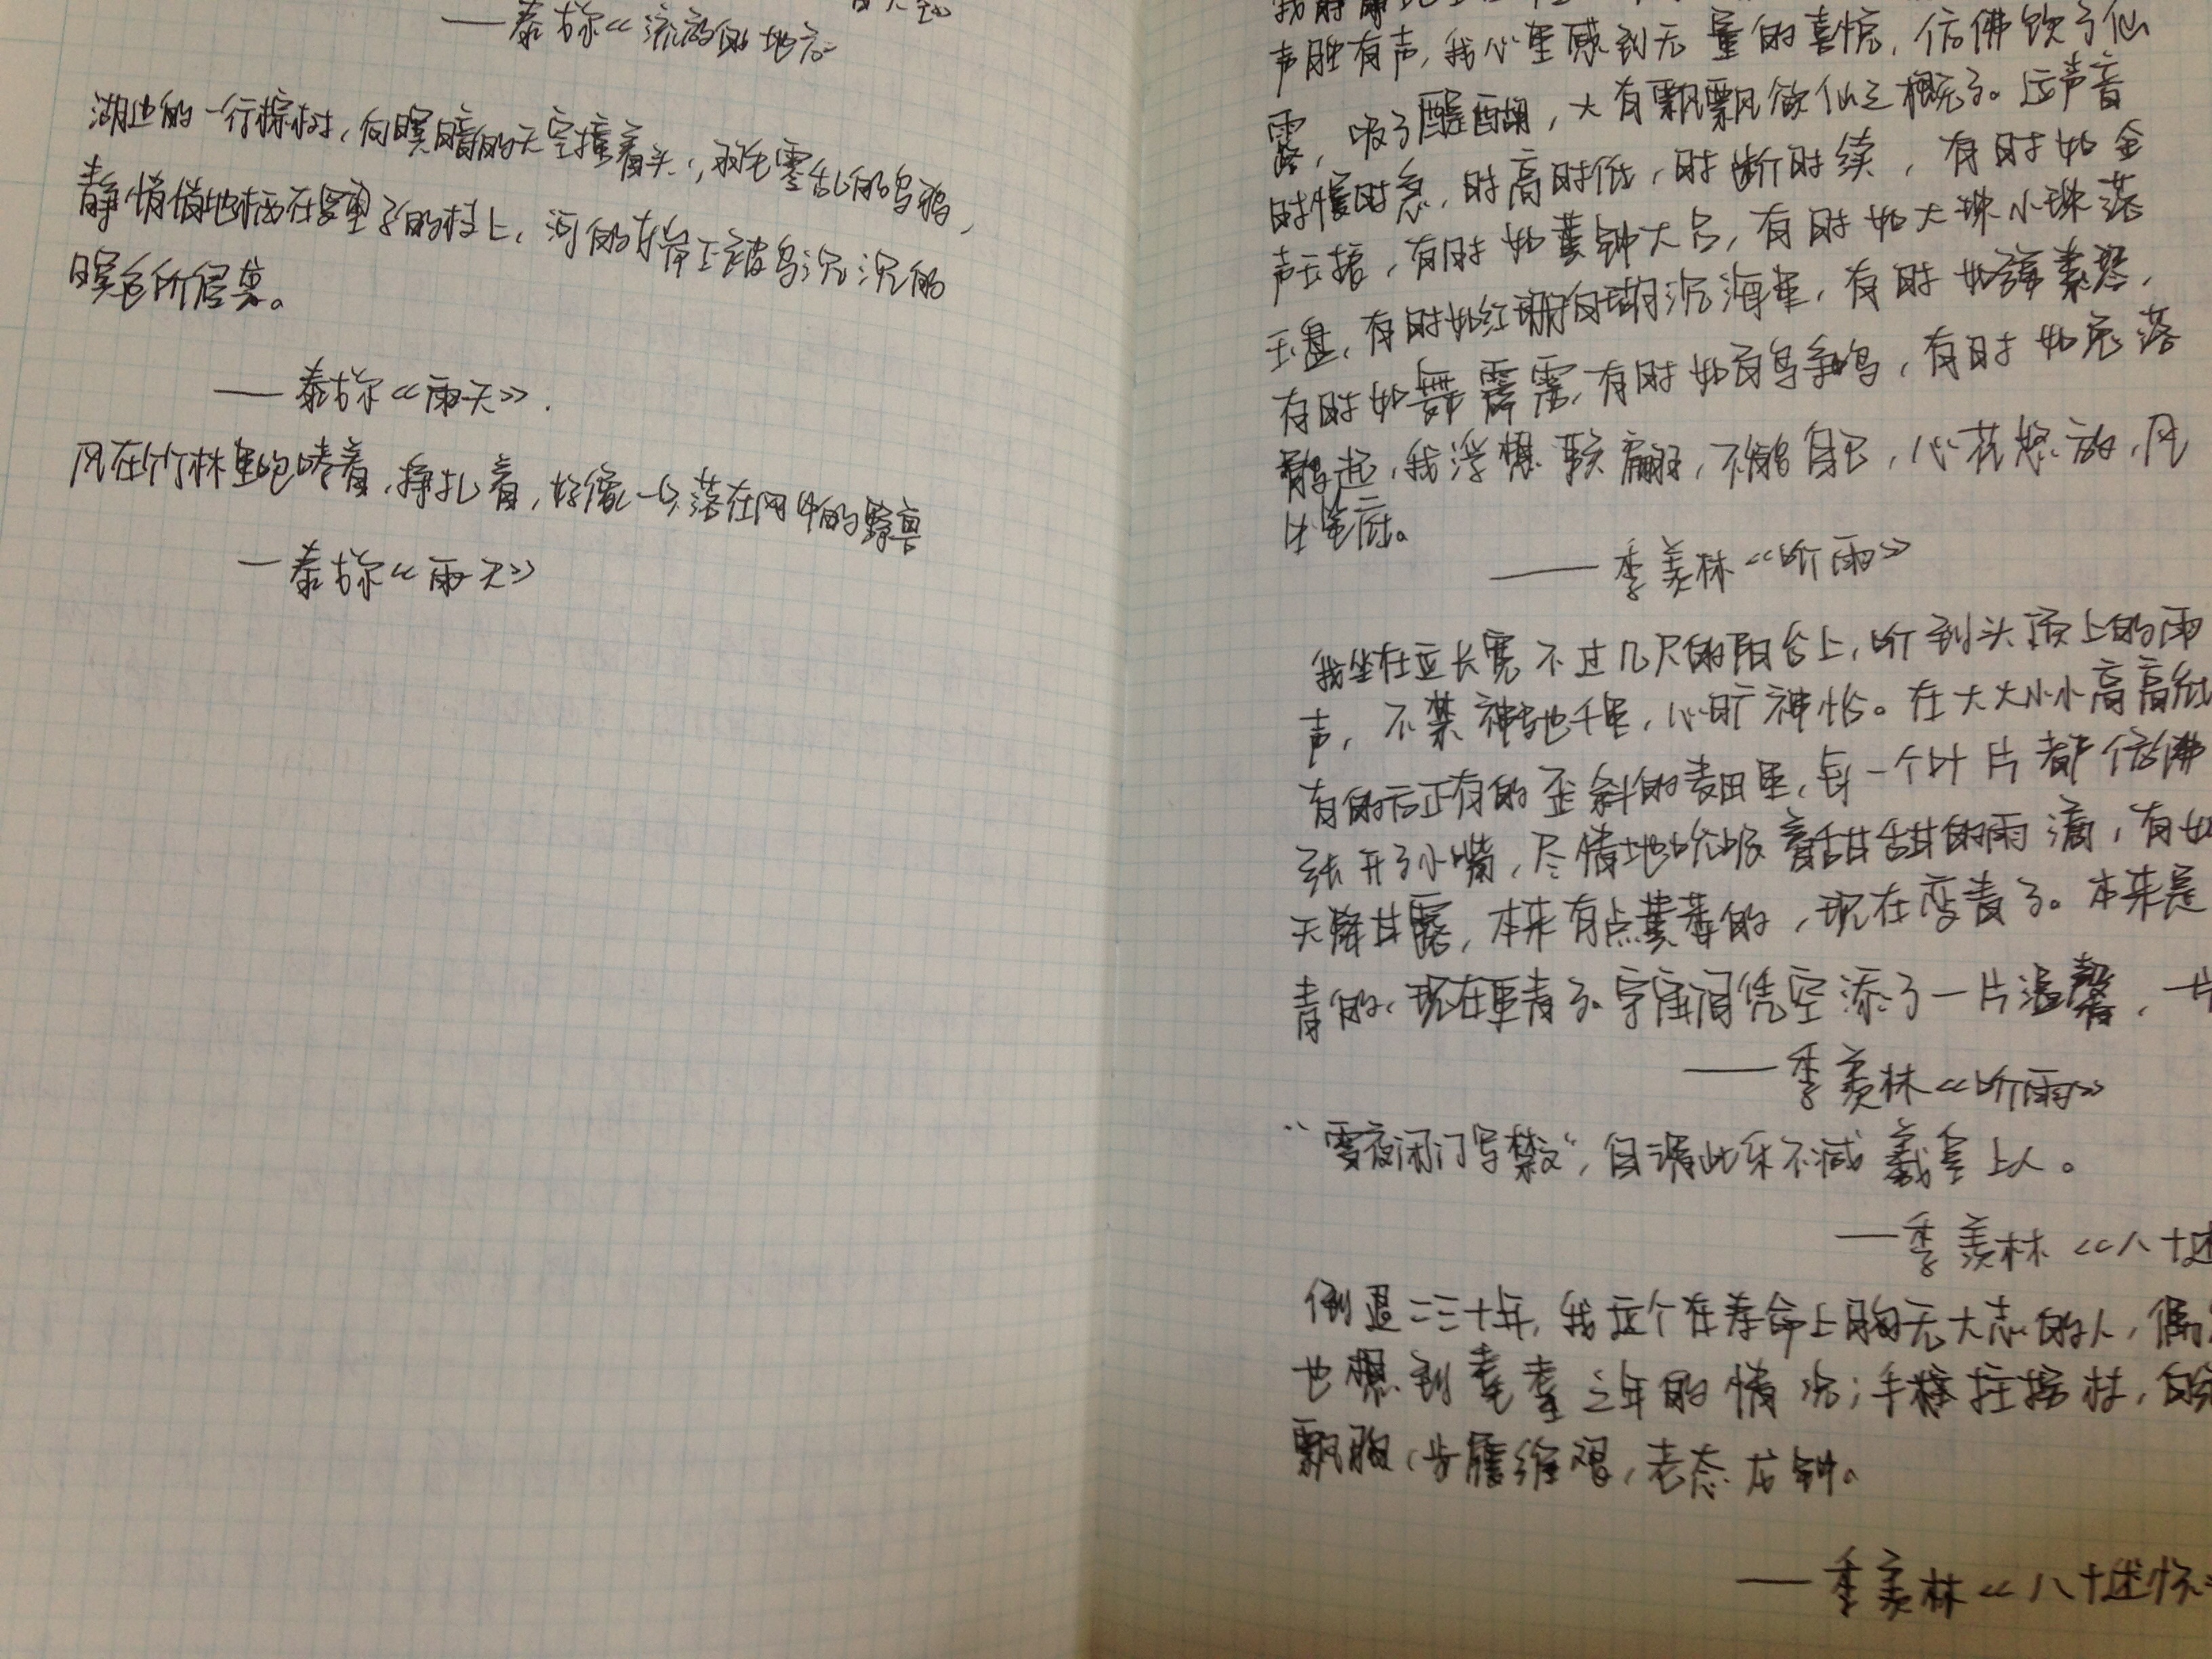 ——泰戈尔《流放的地方
湖边的一行棕树，向暝暗的天空撞着头，羽毛零乱的乌鸦，
静悄悄地栖在罗望子的枝上，河的东岸正被乌沉沉的
暝色所侵袭。
——泰戈尔《雨天》.
风在竹林里咆哮着，挣扎着，好像一只落在网中的野兽
—泰戈尔《雨天》
声胜有声，我心里感到无量的喜悦，仿佛饮了仙
露，吸了醍醐，大有飘飘欲仙之概了。这声音
时慢时急，时高时低，时断时续，有时如金
声玉振，有时如黄钟大吕，有时如大珠小珠落
玉盘，有时如红珊白瑚沉海里，有时如弹素琴，
有时如舞霹雳，有时如百鸟争鸣，有时如兔落
鹘起，我浮想联翩，不能自已，心花怒放，风
生笔底。
——季羡林《听雨》
我坐在这长宽不过几尺的阳台上，听到头顶上的雨
声，不禁神驰千里，心旷神怡。在大大小小高高低
有的方正有的歪斜的麦田里，每一个叶片都仿佛
张开了小嘴，尽情地吮吸着甜甜的雨滴，有如
天降甘露，本来有点黄萎的，现在变青了。本来是
青的，现在更青了。宇宙间凭空添了一片温馨，一片
——季羡林《听雨》
“雪夜闭门写禁文”，自谓此乐不减羲皇上人。
—季羡林《八十述
倒退二三十年，我这个在寿命上胸无大志的人，偶
也想到耄耋之年的情况；手拄拐杖，白须
飘胸，步履维艰，老态龙钟。
——季羡林《八十述怀》